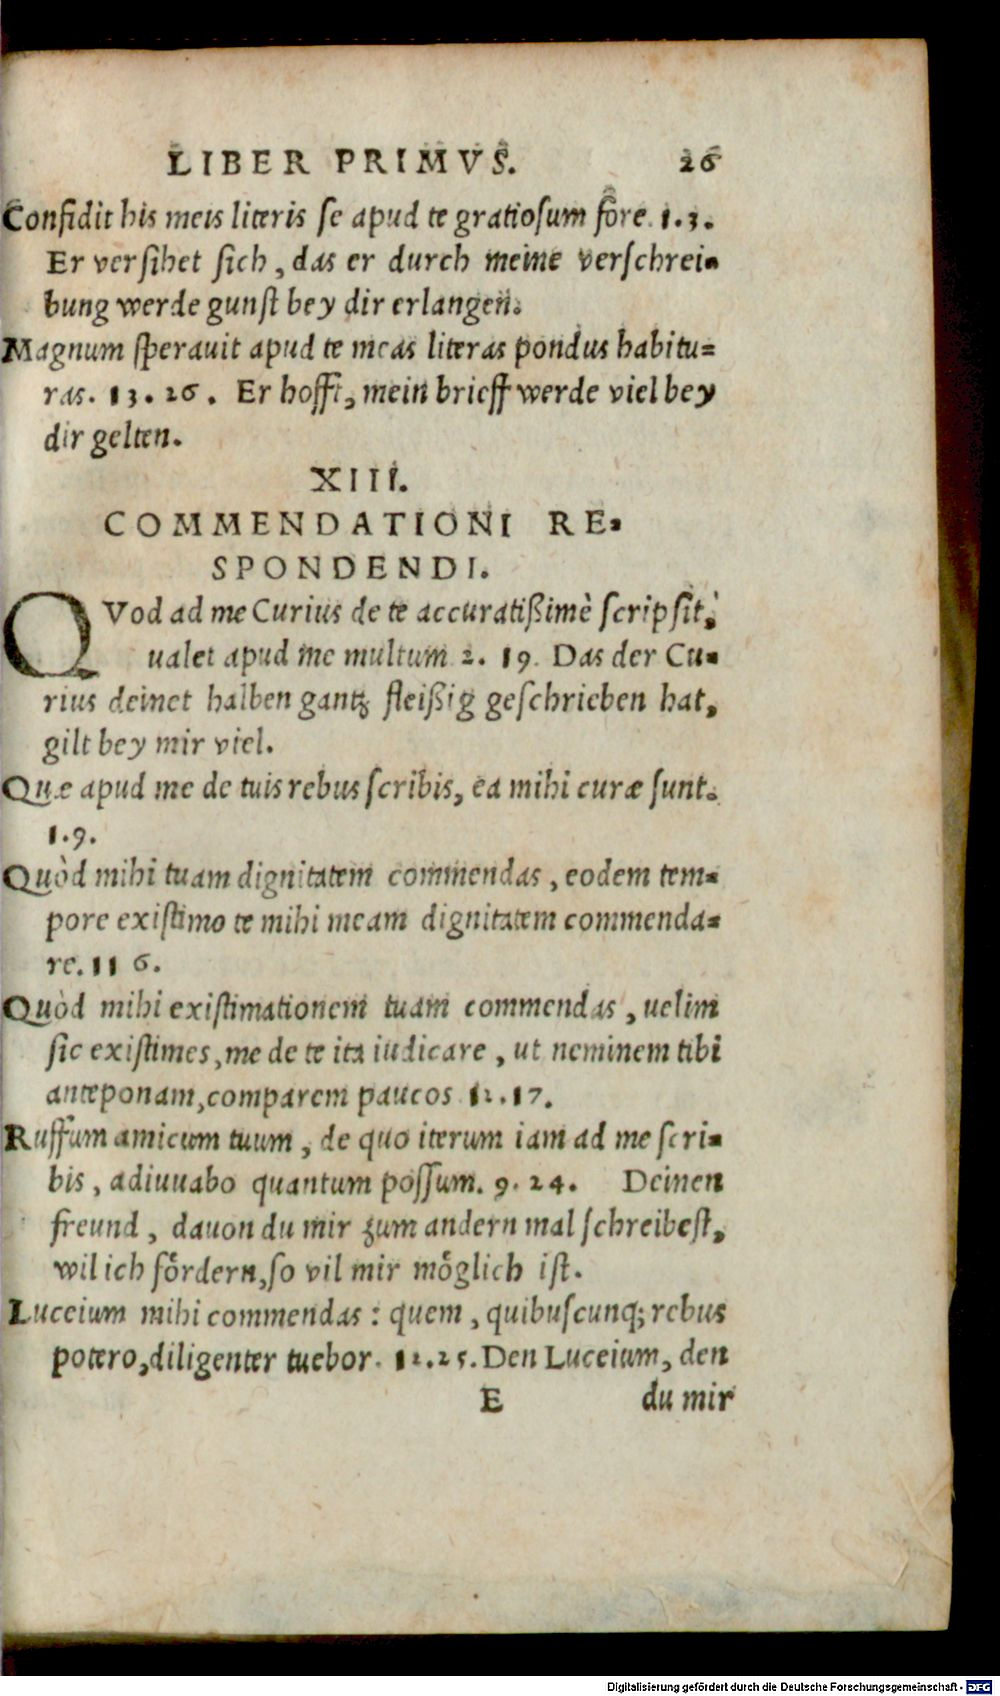 LIBER PRIMVS. 26
Confidit his meis literis se apud te gratiosum fore. 1.3.
Er versihet sich, das er durch meine verschrei-
bung werde gunst bey dir erlangen.
Magnum speravit apud te meas literas pondus habitu=
ras. 13. 26. Er hofft, mein brieff werde viel bey
dir gelten.
XIII.
COMMENDATIONI RE-
SPONDENDI.
QVod ad me Curius de te accuratißimè scripsit,
ualet apud me multum 2. 19. Das der Cu-
rius deinet halben gantz fleißig geschrieben hat,
gilt bey mir viel.
Quæ apud me de tuis rebus scribis, ea mihi curæ sunt.
1.9.
Quòd mihi tuam dignitatem commendas, eodem tem-
pore existimo te mihi meam dignitatem commenda-
re. 11 6.
Quòd mihi existimationem tuam commendas, uelim
sic existimes, me de te ita iudicare, ut neminem tibi
anteponam, comparem paucos 12.17.
Ruffum amicum tuum, de quo iterum iam ad me scri-
bis, adiuuabo quantum possum. 9. 24. Deinen
freund, dauon du mir zum andern mal schreibest,
wil ich fördern, so vil mir möglich ist.
Luceium mihi commendas: quem, quibuscunq; rebus
potero, diligenter tuebor. 12.25. Den Luceium, den
E du mir
Digitalisierung gefördert durch die Deutsche Forschungsgemeinschaft - DFG